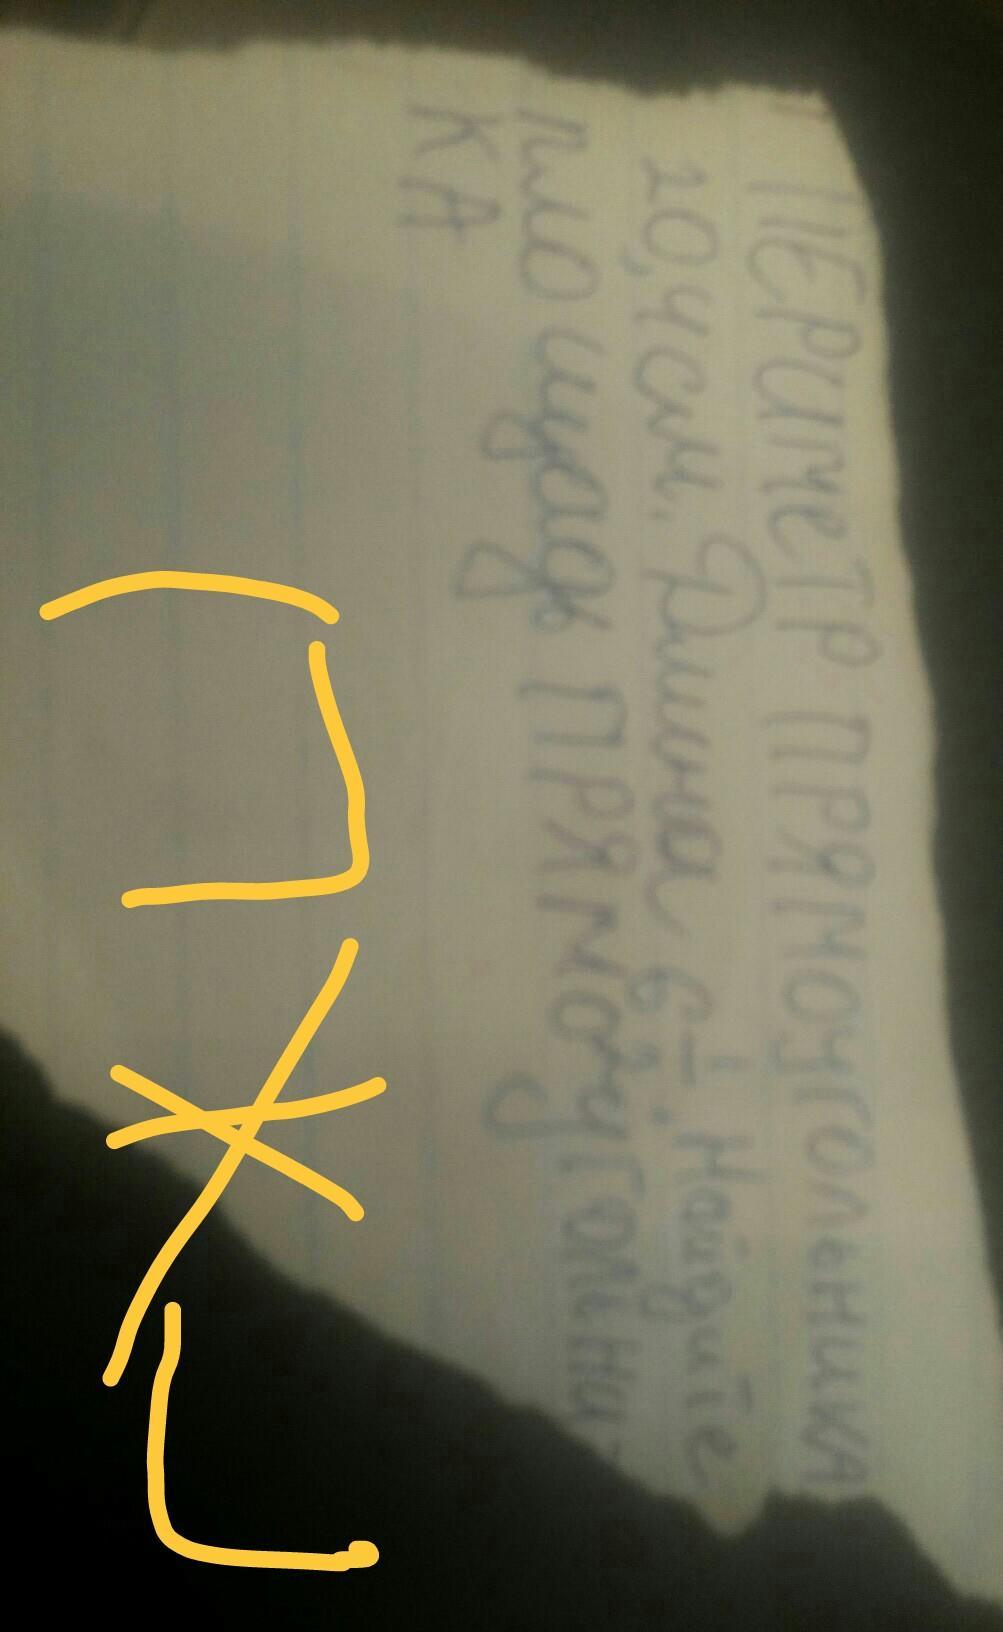 ПЕРИМЕТР ПРЯМОУГОЛЬНИКА
20,4см. Длина 6 Найдите
площадь ПРЯМОУГОЛЬНИ-
КА